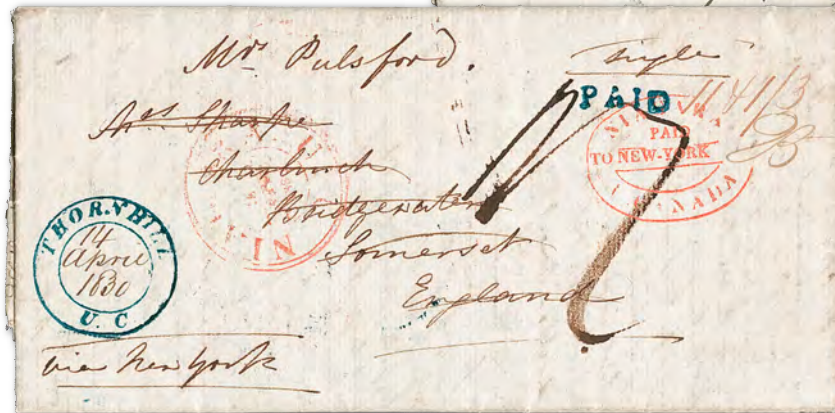 Mrs Pulsford.
Single
PAID
Mrs Sharpe
NIAGARA
PAID
TO NEW-YORK
CANADA
Charlinch
Bridgewater
Somerset
England
THORNHILL
14
April
1830
U. C
via New York